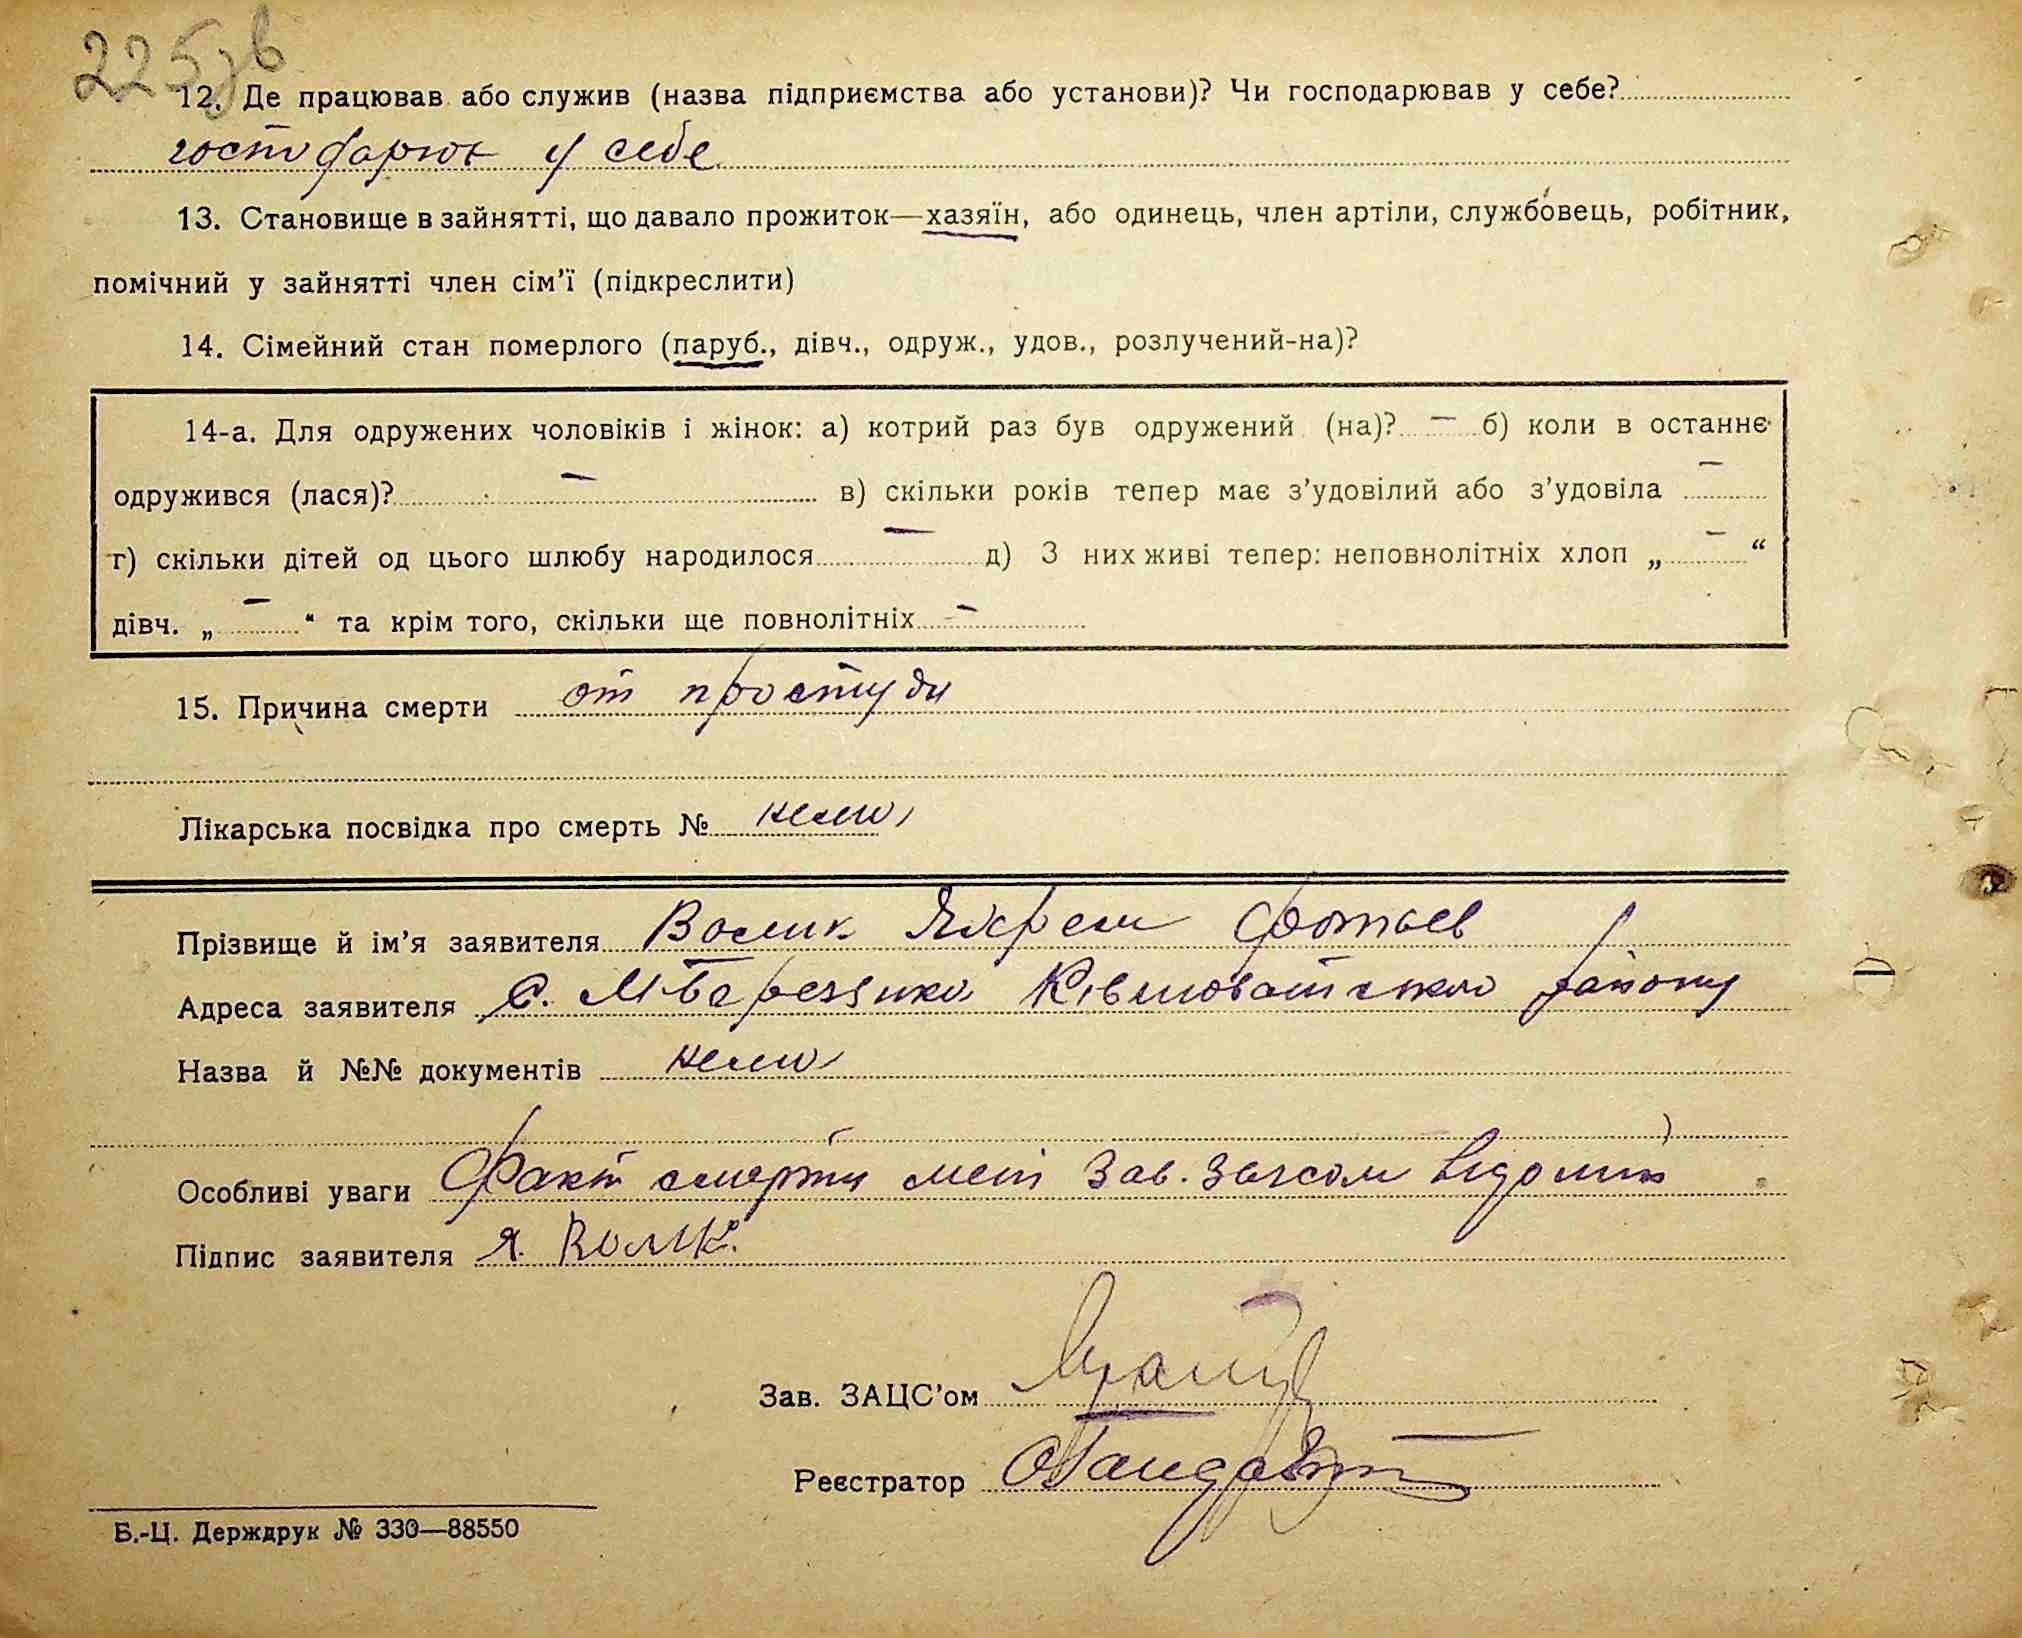 225зв
12. Де працював або служив (назва підприємства або установи)? Чи господарював у себе?
господарює у себе
13. Становище в зайнятті, що давало прожиток—хазяїн, або одинець, член артіли, службовець, робітник,
помічний у зайнятті член сім’ї (підкреслити)
14. Сімейний стан померлого (паруб., дівч., одруж., удов., розлучений-на)?
14-а. Для одружених чоловіків і жінок: а) котрий раз був одружений (на)? — б) коли в останнє
одружився (лася)? — в) скільки років тепер має з’удовілий або з’удовіла —
г) скільки дітей од цього шлюбу народилося — д) З них живі тепер: неповнолітніх хлоп „ — “
дівч. „ — “ та крім того, скільки ще повнолітніх —
15. Причина смерти от простуди
Лікарська посвідка про смерть № нема
Прізвище й ім’я заявителя Волик Яхрем
Адреса заявителя С. М-Березянка Ківшоватського району
Назва й №№ документів нема
Особливі уваги Факт смерти мені Зав. Загсом відомий
Підпис заявителя Я. Волик.
Зав. ЗАЦС’ом
Реєстратор
Б.-Ц. Держдрук № 330—88550